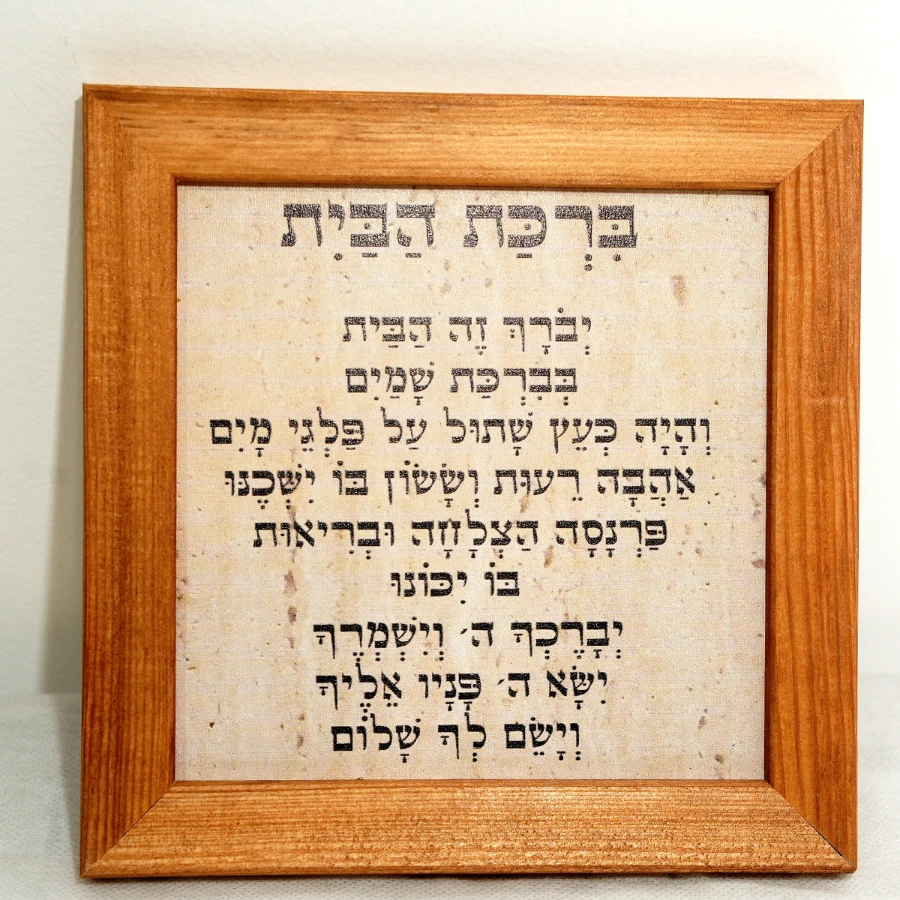 בִּרְכַּת הַבַּיִת
יְבֹרָךְ זֶה הַבַּיִת
בְּבִרְכַּת שָׁמַיִם
וְהָיָה כְּעֵץ שָׁתוּל עַל פַּלְגֵי מָיִם
אַהֲבָה רֵעוּת וְשָׂשׂוֹן בּוֹ יִשְׁכְּנוּ
פַּרְנָסָה הַצְלָחָה וּבְרִיאוּת
בּוֹ יִכּוֹנוּ
יְבָרֶכְךָ ה׳ וְיִשְׁמְרֶךָ
יִשָּׂא ה׳ פָּנָיו אֵלֶיךָ
וְיָשֵׂם לְךָ שָׁלוֹם